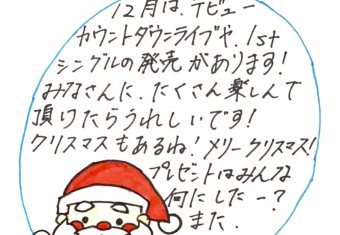 12月は、デビュー
カウントダウンライブや、1st
シングルの発売があります!
みなさんに、たくさん楽しんで
頂けたらうれしいです!
クリスマスもあるね!メリークリスマス!
プレゼントはみんな
何にしたー?
また、